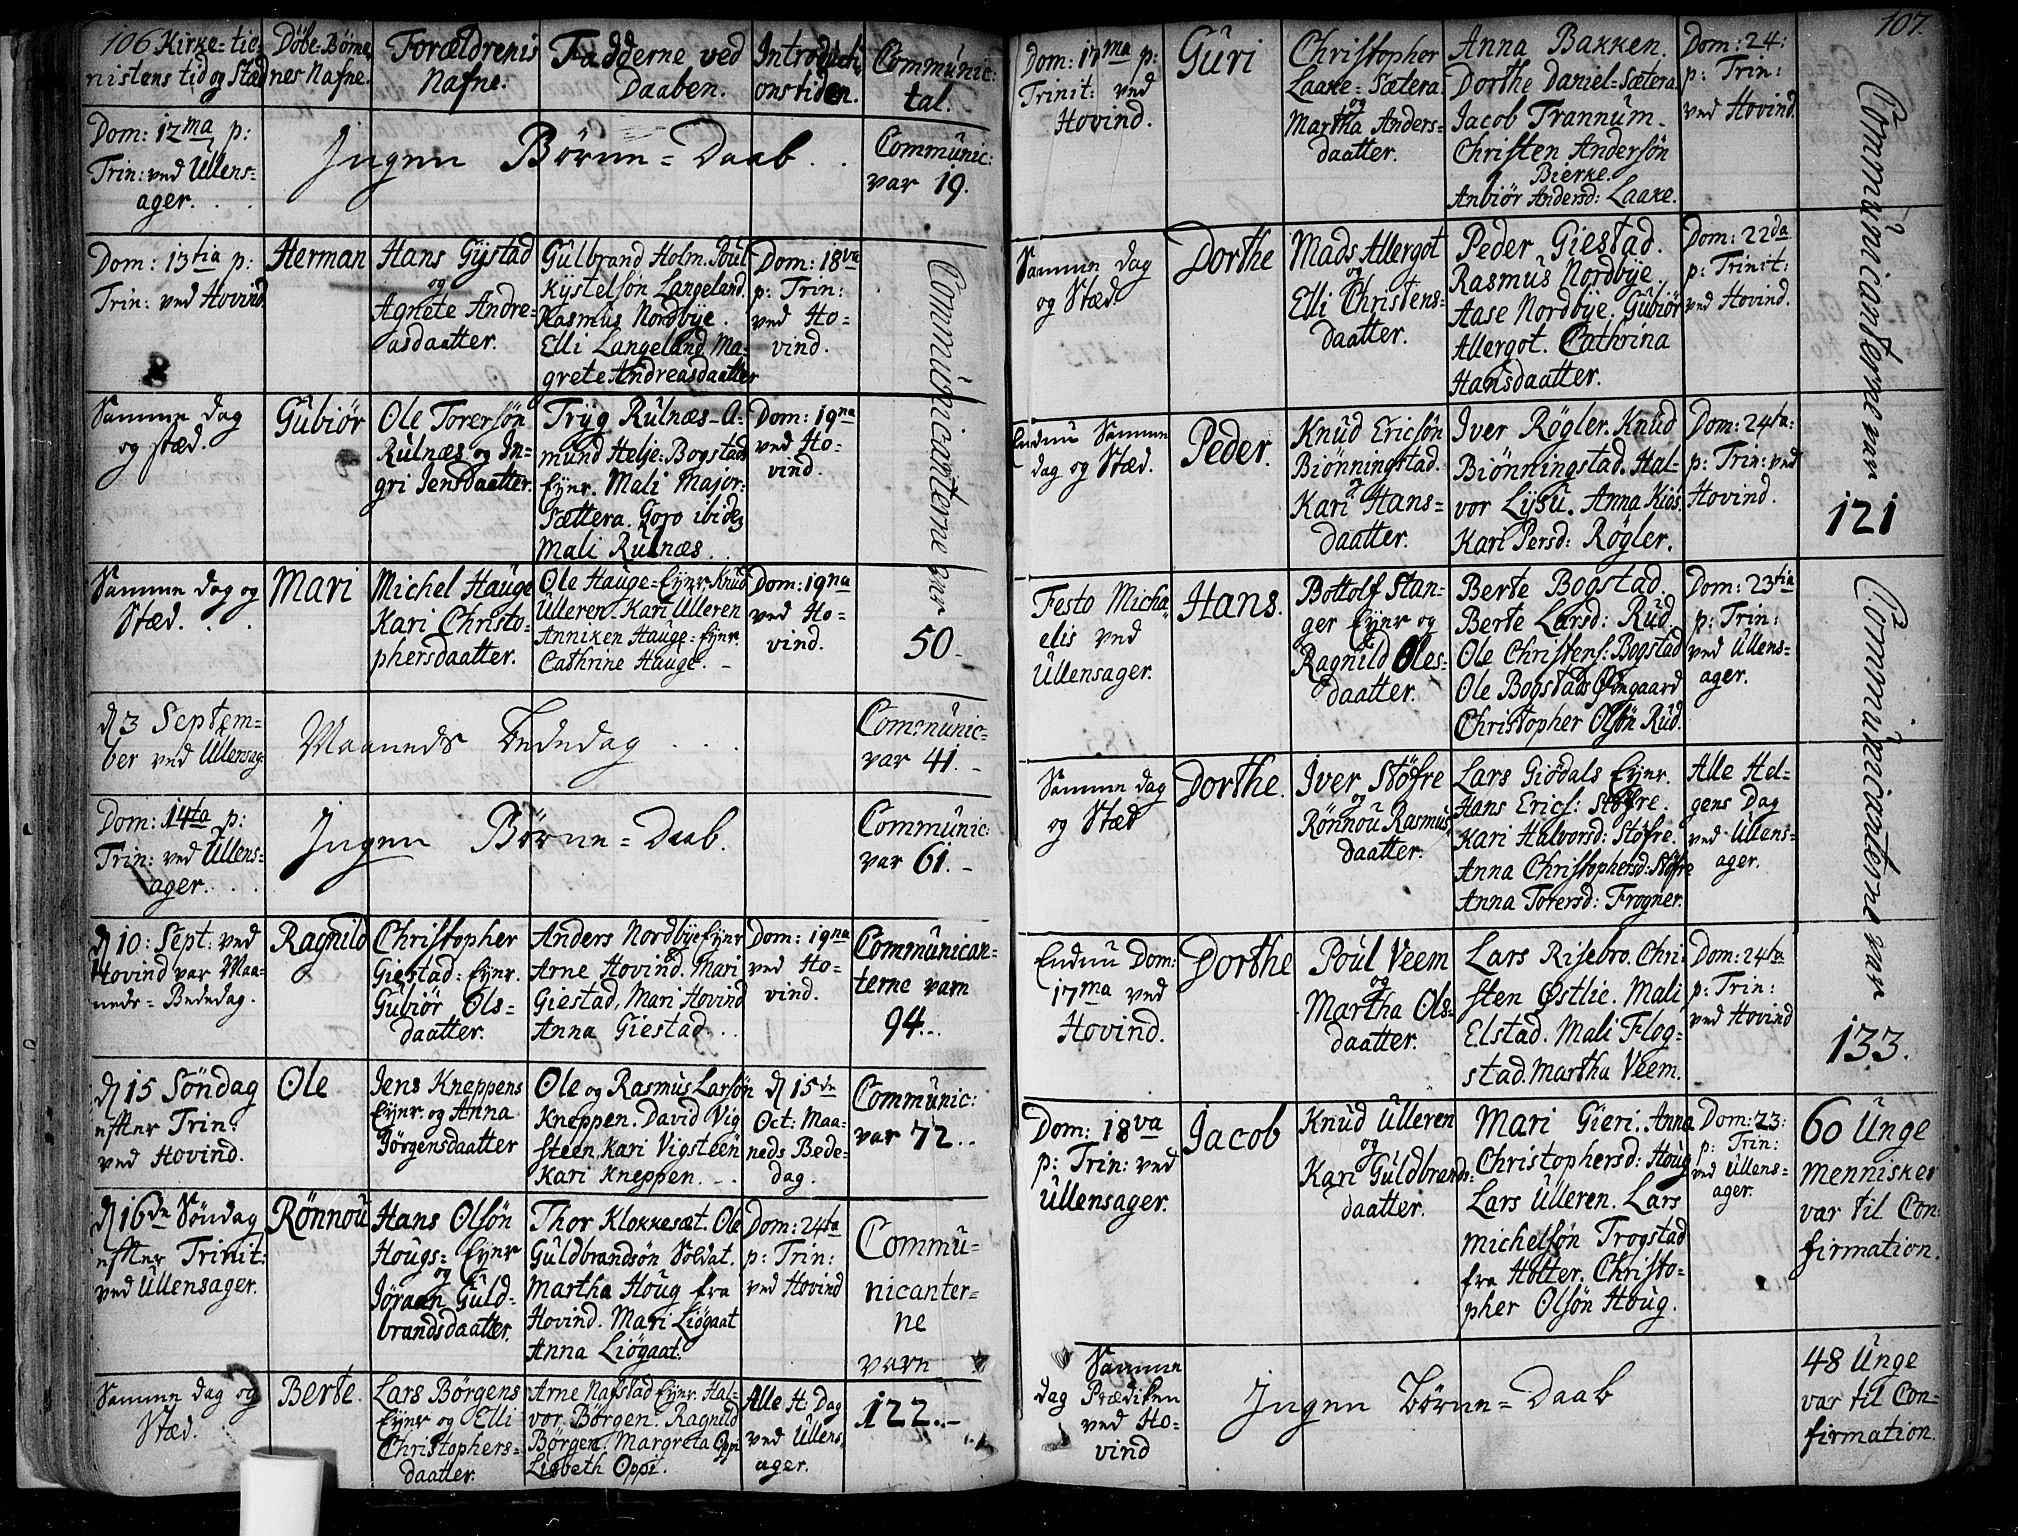 106 Kirke-tie-
nistens tid og Stæd
Døbe-Børne-
nes Nafne.
Forældrenis
Nafne.
Fadderne ved
Daaben.
Introducti-
onstiden.
Communic:
tal.
Dom: 12ma p:
Trin: ved Ullens-
ager. . .
Ingen Børne-Daab. .
Communic:
var 19.
Dom: 13tia p:
Trin: ved Hovind.
Herman
Hans Gystad
og
Agnete Andre-
asdaatter.
Gulbrand Holm. Poul
Kystelsøn Langeland.
Rasmus Nordbye.
Elli Langeland. Ma-
grete Andreasdaatter
Dom: 18va
p: Trin:
ved Ho-
vind.
Communicanterne var
50-
Samme dag
og stæd.
Gubiør
Ole Torersøn
Rulnæs og In-
gri Jensdaatter.
Tryg Rulnæs-A-
mund Helje. Bogstad
Eyer. Mali Major-
Sættera. Goro ibid:
Mali Rulnæs. .
Dom: 19na
ved Ho-
vind.
Samme dag og
Stæd. . .
Mari
Michel Hauge
Kari Christo-
phersdaatter.
Ole Hauge-Eyer. Knud
Ulleren. Kari Ulleren
Anniken Hauge-Eyer.
Cathrine Hauge. -
Dom: 19na
ved Ho-
vind.
d 3 Septem-
ber ved Ullensag:
Maaneds Bededag . . .
Communic-
var 41. -
Dom: 14ta p:
Trin: ved Ullens-
ager. . .
Ingen Børne-Daab.
Communic:
var 61. -
d 10: Sept: ved
Hovind var Maa-
neds-Bededag.
Ragnild
Christopher
Giestad: Eyer.
Gubiør Ols-
daatter.
Anders Nordbye Eyer
Arne Hovind. Mari
Giestad. Mari Hovind
Anna Giestad. . .
Dom: 19na
ved Ho-
vind.
Communican-
terne varn
94. -
d 15 Søndag
efter Trin:
ved Hovind.
Ole
Jens Kneppens
Eyer og Anna
Jørgensdaatter
Ole og Rasmus Larsøn
Kneppen. David Vig
steen, Kari Vigsteen
Kari Kneppen. - .
d 15de
Oct: Maa-
neds Bede-
dag.
Communic:
var 72. .
d 16de Søndag
efter Trinit:
ved Ullensager.
Rönnou
Hans Olsøn
Hougs-Eyer
og
Jøraan Guld-
brandsdaatter.
Thor Klokkesæt. Ole
Guldbrandsøn Soldat.
Martha Houg fra
Hovind. Mari Liøgaat
Anna Liøgaat.
Dom: 24ta
p: Trin:
ved Hovind
Commu-
nicanter-
ne
varn
122. -
Samme dag og
Stæd.
Berte.
Lars Børgens
Eyer og Elli
Christophers-
daatter.
Arne Nafstad Eyer. Hal-
vor Børgen. Ragnild
Børgen. Margreta Oppi
Lisbeth Oppi.
Alle H: Dag
ved Ullens-
ager.
107.
Dom: 17ma p:
Trinit: ved
Hovind.
Guri
Christopher
Laake-Sætera.
og
Martha Anders-
daatter.
Anna Bakken.
Dorthe Daniel-Sætera
Jacob Trannum.
Christen Andersøn
Bierke.
Anbiør Andersd: Laake.
Dom: 24:
p: Trin:
ved Hovind.
Communicanterne var
121
Samme dag
og Stæd.
Dorthe
Mads Allergot
og
Elli Christens-
daatter.
Peder Giestad.
Rasmus Nordbye
Aase Nordbye. Gubiør
Allergot. Cathrina
Hansdaatter.
Dom: 22da
p: Trinit:
ved Hovind.
Endnu Samme
dag og Stæd.
Peder.
Knud Ericsøn
Biønningstad.
og
Kari Hans-
daatter.
Iver Røgler. Knud
Biønningstad. Hal-
vor Lysu. Anna Kios.
Kari Persd: Røgler.
Dom: 24ta:
p: Trin: ved
Hovind.
Festo Micha-
elis ved
Ullensager.
Hans.
Bottolf Stan-
ger Eyer og
Ragnild Oles-
daatter.
Berte Bogstad.
Berte Larsd: Rud.
Ole Christens: Bogstad
Ole Bogstads Øvngaard
Christopher Olsøn Rud.
Dom: 23tia
p: Trin:
ved Ullens-
ager.
Communicanterne var
133.
Samme dag
og Stæd
Dorthe.
Iver Støfre
og
Rønnou Rasmus-
daatter.
Lars Giødals Eyer.
Hans Erics: Støfre.
Kari Halvorsd: Støfre.
Anna Christophersd: Støfre
Anna Torersd: Frogner.
Alle Hel-
gens Dag
ved Ullens-
ager.
Endnu Dom:
17ma ved
Hovind.
Dorthe
Poul Veem
og
Martha Ols-
daatter.
Lars Risebro. Chri-
sten Østlie. Mali
Elstad. Mali Flog-
stad. Martha Veem.
Dom: 24ta
p: Trin:
ved Hovind
Dom: 18va
p: Trin: ved
Ullensager.
Jacob
Knud Ulleren
og
Kari Guldbrands:
daatter.
Mari Gieri. Anna
Christophersd: Houg
Lars Ulleren. Lars
Michelsøn Trogstad
fra Holter. Christo-
pher Olsøn Houg.
Dom: 23:
p: Trin:
ved Ullens-
ager.
60 Unge
Mennisker
var til Con-
firmation.
Samme
dag Prædiken
ved Ho-
vind
Ingen Børne-Daab
48 Unge
var til Con-
firmation.